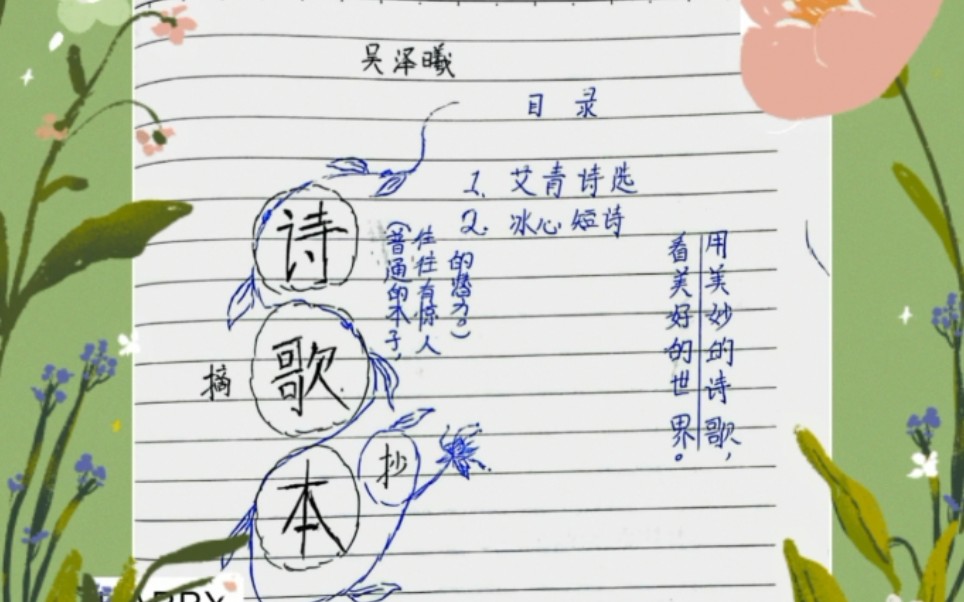 吴泽曦
目 录
1. 艾青诗选
2. 冰心短诗
诗
歌
本
摘
抄
(普通的本子,
往往有惊人
的潜力。)
用美妙的诗歌,
看美好的世界。